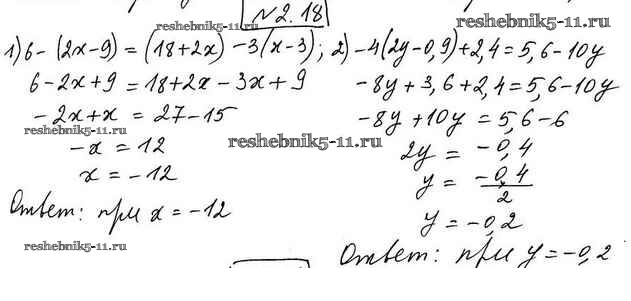 №2.18
reshebnik5-11.ru
1) 6-(2x-9)=(18+2x)-3(x-3);
6-2x+9=18+2x-3x+9
-2x+x=27-15
reshebnik5-11.ru
-x=12
x=-12
Ответ: при x=-12
reshebnik5-11.ru
2) -4(2y-0,9)+2,4=5,6-10y
reshebnik5-11.ru
-8y+3,6+2,4=5,6-10y
-8y+10y=5,6-6
reshebnik5-11.ru
2y=-0,4
y=-0,4/2
y=-0,2
Ответ: при y=-0,2